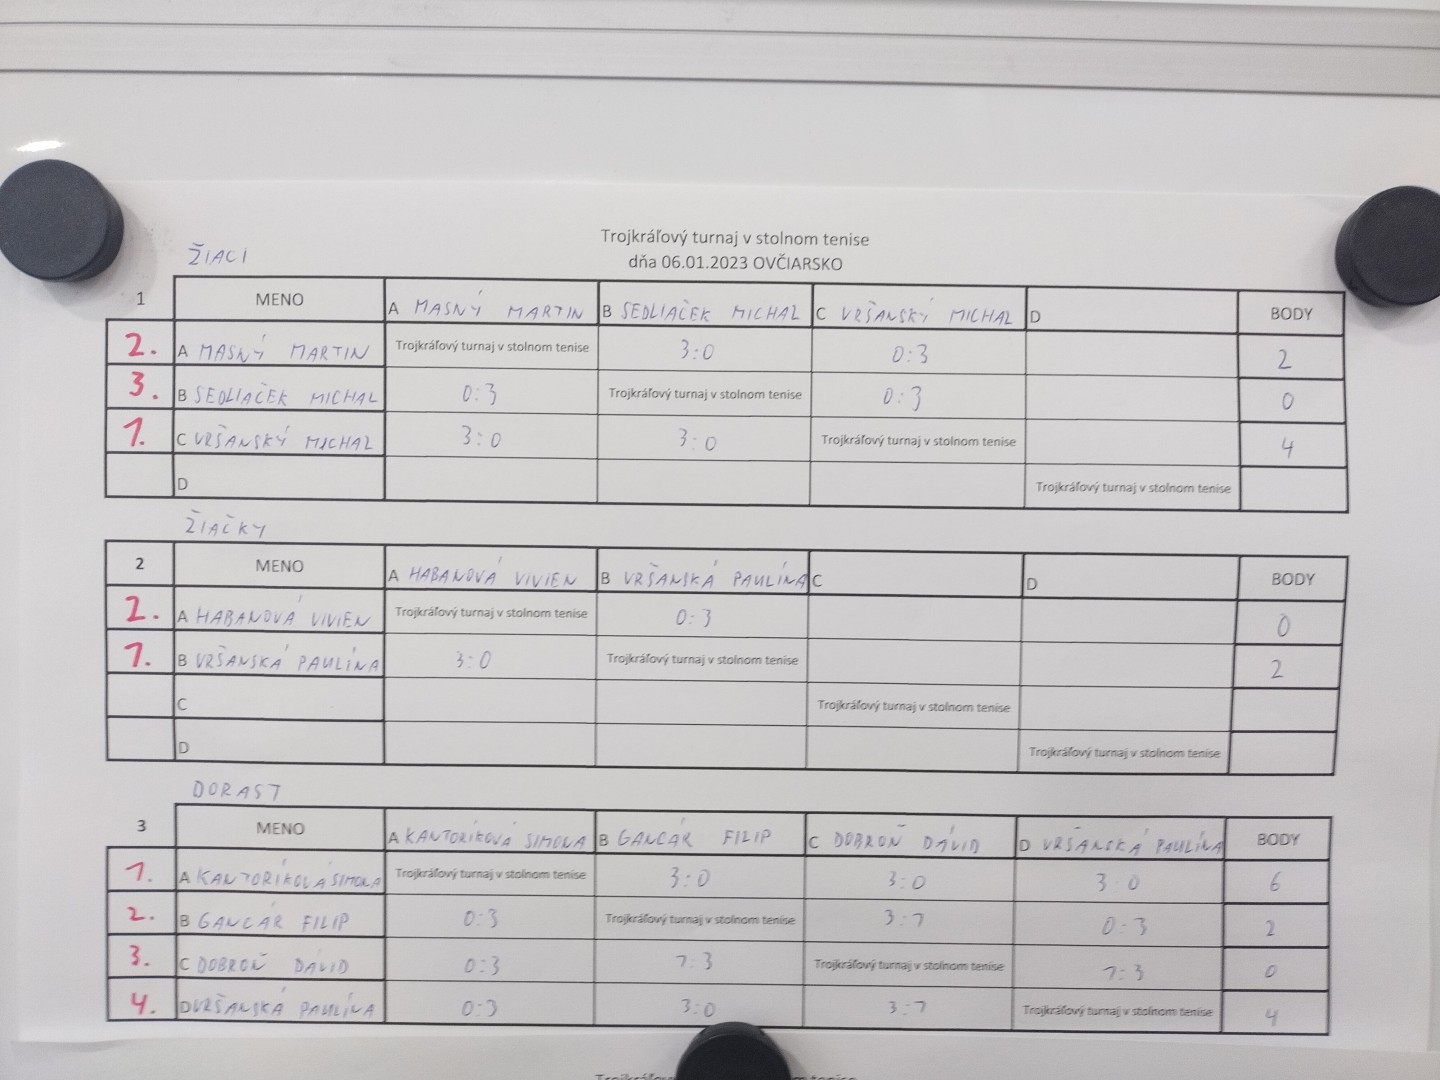 Trojkráľový turnaj v stolnom tenise
dňa 06.01.2023 OVČIARSKO
ŽIACI
1 MENO A MASNÝ MARTIN B SEDLIAČEK MICHAL C VRŠANSKÝ MICHAL D BODY
2. A MASNÝ MARTIN Trojkráľový turnaj v stolnom tenise 3:0 0:3 2
3. B SEDLIAČEK MICHAL 0:3 Trojkráľový turnaj v stolnom tenise 0:3 0
1. C VRŠANSKÝ MICHAL 3:0 3:0 Trojkráľový turnaj v stolnom tenise 4
D Trojkráľový turnaj v stolnom tenise
ŽIAČKY
2 MENO A HABANOVÁ VIVIEN B VRŠANSKÁ PAULÍNA C D BODY
2. A HABANOVÁ VIVIEN Trojkráľový turnaj v stolnom tenise 0:3 0
1. B VRŠANSKÁ PAULÍNA 3:0 Trojkráľový turnaj v stolnom tenise 2
C Trojkráľový turnaj v stolnom tenise
D Trojkráľový turnaj v stolnom tenise
DORAST
3 MENO A KANTORÍKOVÁ SIMONA B GANCÁR FILIP C DOBROŇ DÁVID D VRŠANSKÁ PAULÍNA BODY
1. A KANTORÍKOVÁ SIMONA Trojkráľový turnaj v stolnom tenise 3:0 3:0 3:0 6
2. B GANCÁR FILIP 0:3 Trojkráľový turnaj v stolnom tenise 3:1 0:3 2
3. C DOBROŇ DÁVID 0:3 1:3 Trojkráľový turnaj v stolnom tenise 1:3 0
4. D VRŠANSKÁ PAULÍNA 0:3 3:0 3:1 Trojkráľový turnaj v stolnom tenise 4